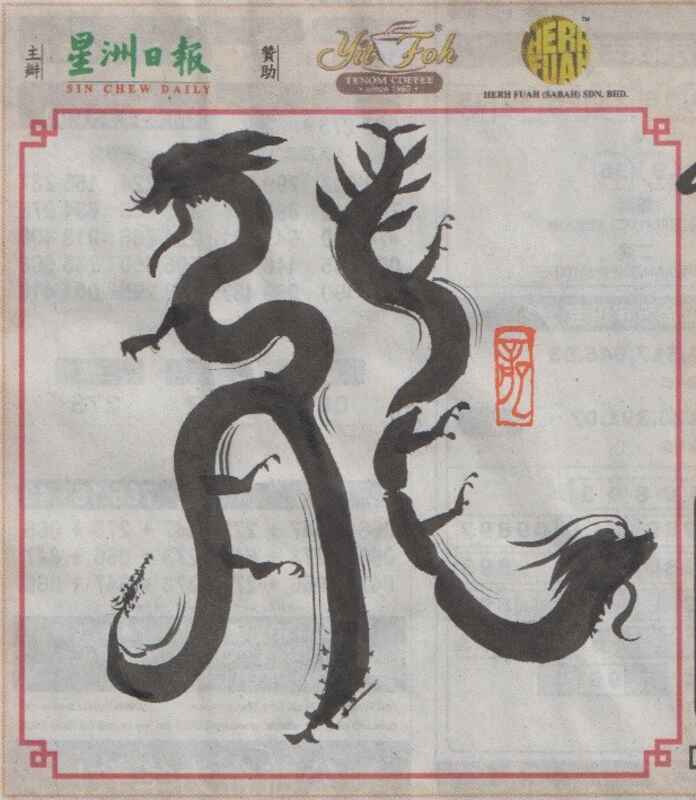 主辦
星洲日報
SIN CHEW DAILY
贊助
Yit Foh
TENOM COFFEE
• since 1960 •
HERH
FUAH
HERH FUAH (SABAH) SDN. BHD.
龍